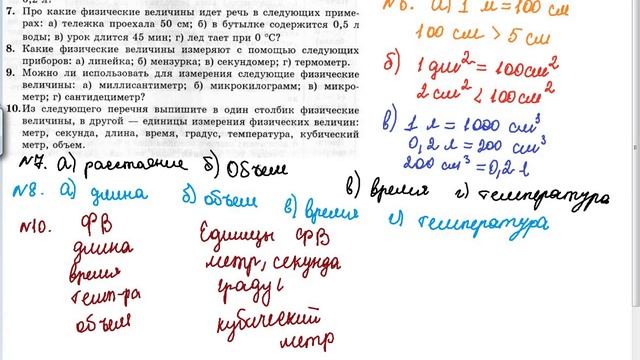 0,2 л.
7. Про какие физические величины идет речь в следующих приме-
рах: а) тележка проехала 50 см; б) в бутылке содержится 0,5 л
воды; в) урок длится 45 мин; г) лед тает при 0 °С?
8. Какие физические величины измеряют с помощью следующих
приборов: а) линейка; б) мензурка; в) секундомер; г) термометр.
9. Можно ли использовать для измерения следующие физические
величины: а) миллисантиметр; б) микрокилограмм; в) микро-
метр; г) сантидециметр?
10. Из следующего перечня выпишите в один столбик физические
величины, в другой — единицы измерения физических величин:
метр, секунда, длина, время, градус, температура, кубический
метр, объем.
№6. а) 1 м = 100 см
100 см > 5 см
б) 1 дм² = 100 см²
2 см² < 100 см²
в) 1 л = 1000 см³
0,2 л = 200 см³
200 см³ = 0,2 л
№7. а) расстояние б) Объем
в) время г) температура
№8. а) длина б) объем в) время г) температура
№10. ФВ Единицы ФВ
длина метр, секунда
время градус
темп-ра кубический
объем метр